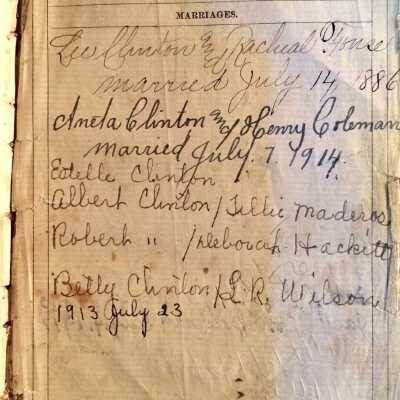 MARRIAGES.
Lee Clinton and Racheal House
married July 14 1886
Aneta Clinton and Henry Coleman
married July. 7. 1914.
Estelle Clinton
Albert Clinton / Tillie Maderos
Robert " / Deborah Hackett
Betty Clinton / L. R. Wilson
1913 July 23